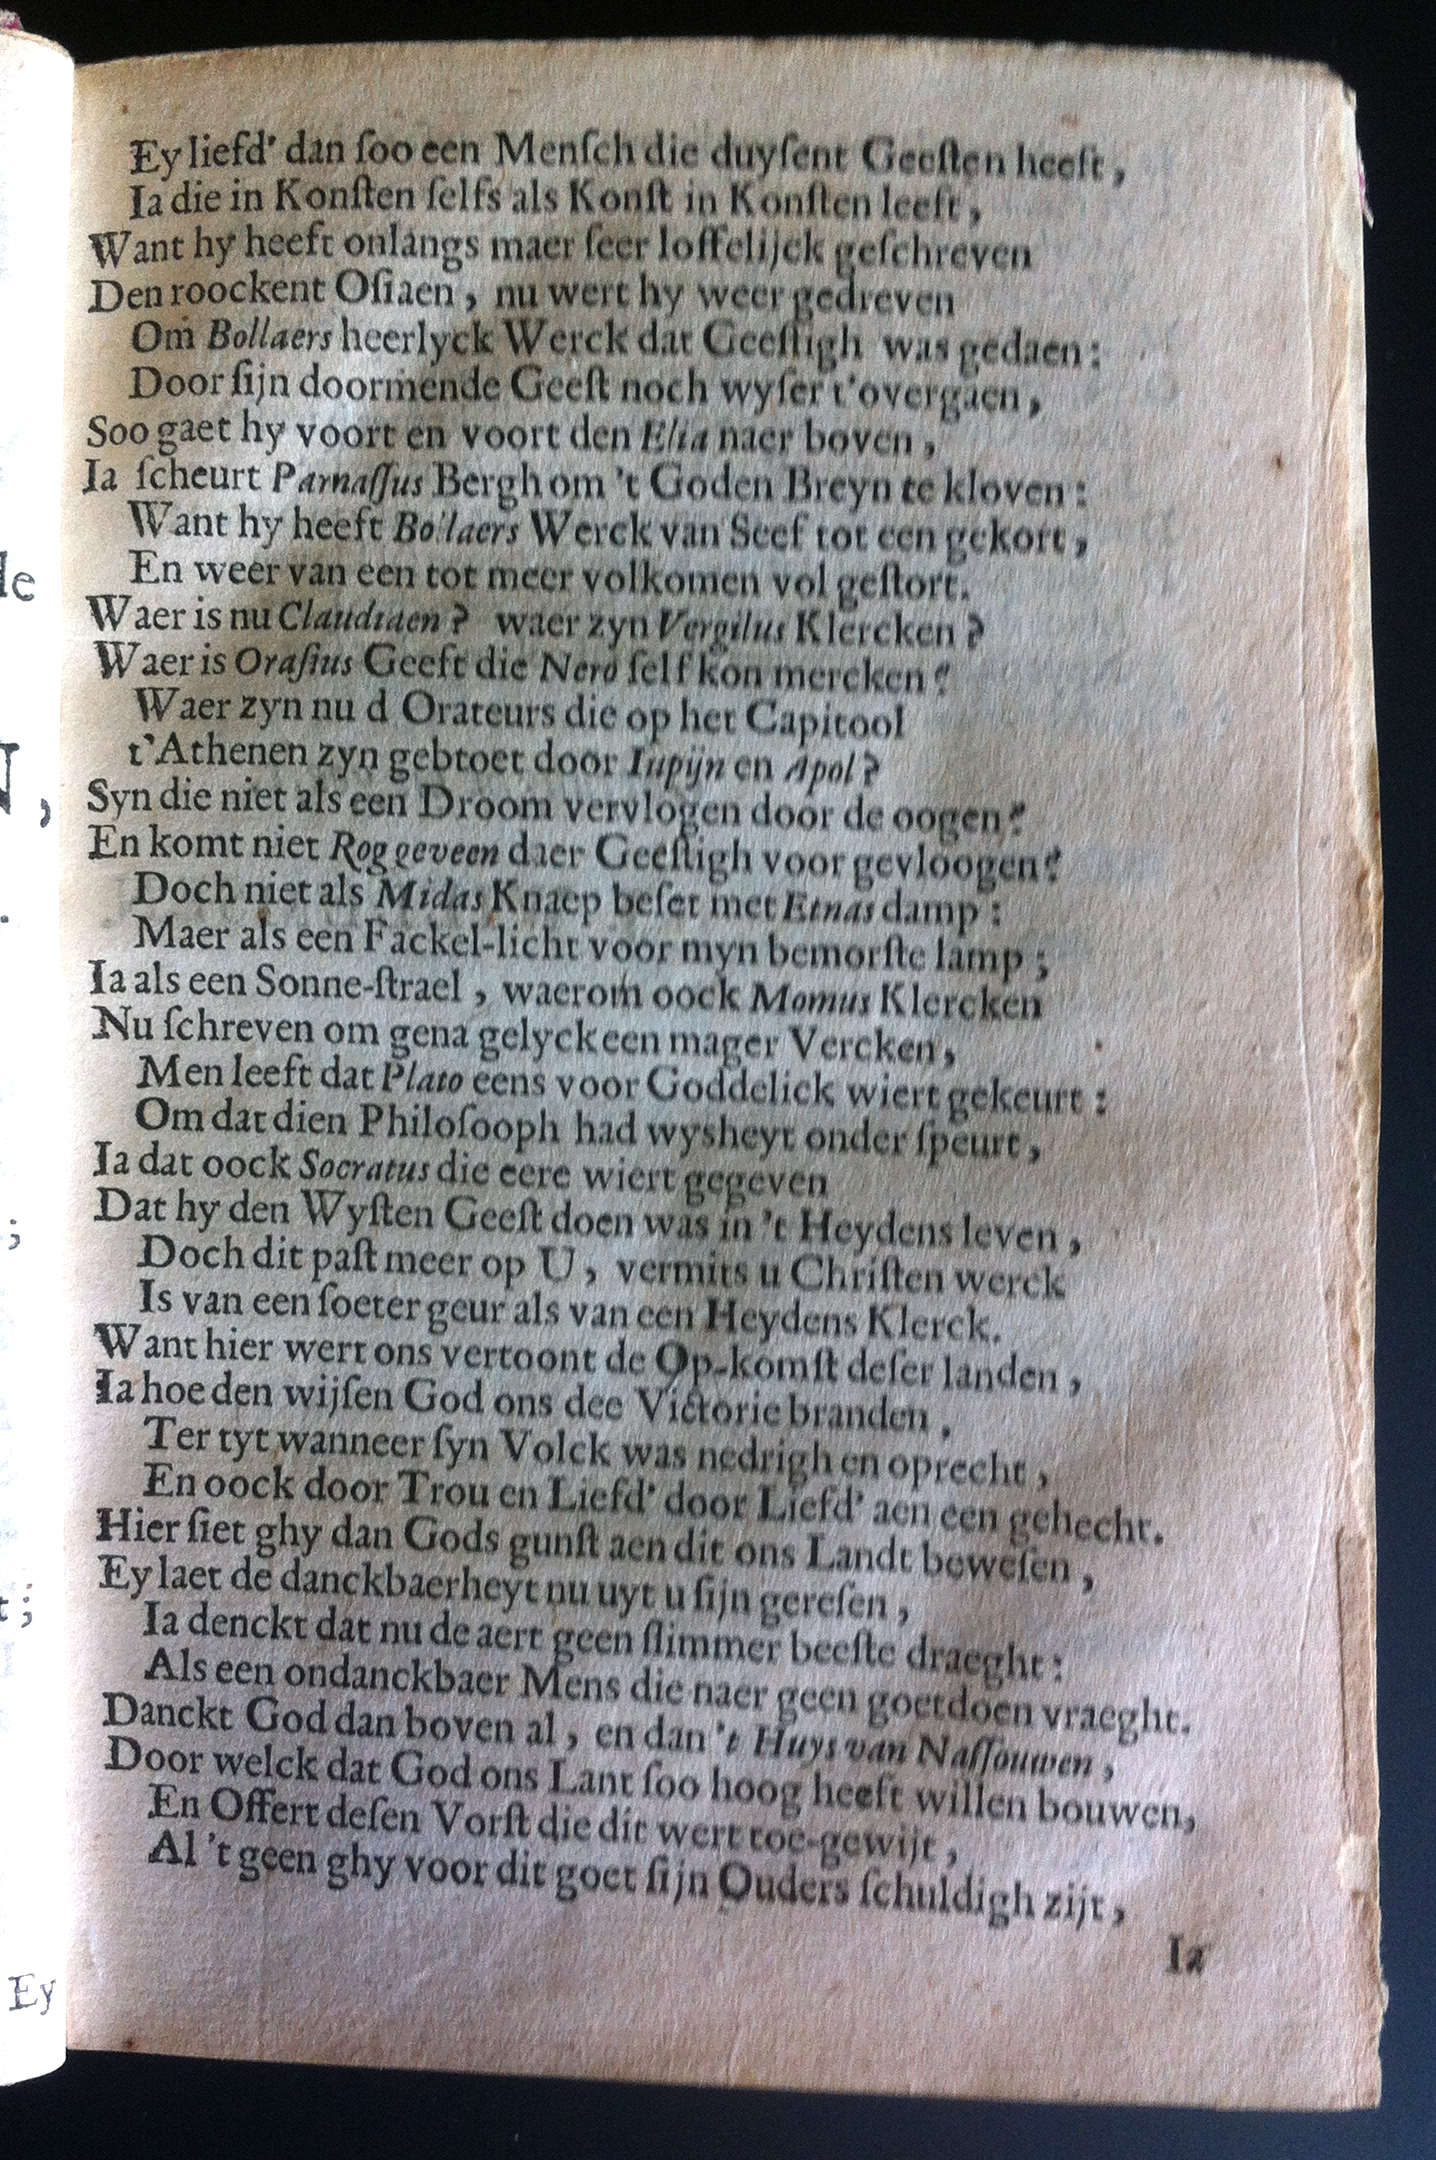 Ey liefd' dan ſoo een Menſch die duyſent Geeſten heeft,
Ia die in Konſten ſelfs als Konſt in Konſten leeft,
Want hy heeft onlangs maer ſeer loffelijck geſchreven
Den roockent Oſiaen, nu wert hy weer gedreven
Om Bollaers heerlyck Werck dat Geeſtigh was gedaen:
Door ſijn doormende Geeſt noch wyſer t'overgaen,
Soo gaet hy voort en voort den Elia naer boven,
Ia ſcheurt Parnaſſus Bergh om 't Goden Breyn te kloven:
Want hy heeft Bollaers Werck van Seef tot een gekort,
En weer van een tot meer volkomen vol geſtort.
Waer is nu Claudiaen? waer zyn Vergilus Klercken?
Waer is Oraſius Geeſt die Nero ſelf kon mercken?
Waer zyn nu d Orateurs die op het Capitool
t'Athenen zyn gebroet door Iupijn en Apol?
Syn die niet als een Droom vervlogen door de oogen?
En komt niet Roggeveen daer Geeſtigh voor gevloogen?
Doch niet als Midas Knaep beſet met Etnas damp:
Maer als een Fackel-licht voor myn bemorſte lamp;
Ia als een Sonne-ſtrael, waerom oock Momus Klercken
Nu ſchreven om gena gelyck een mager Vercken,
Men leeſt dat Plato eens voor Goddelick wiert gekeurt:
Om dat dien Philoſooph had wysheyt onder ſpeurt,
Ia dat oock Socratus die eere wiert gegeven
Dat hy den Wyſten Geeſt doen was in 't Heydens leven,
Doch dit paſt meer op U, vermits u Chriſten werck
Is van een ſoeter geur als van een Heydens Klerck.
Want hier wert ons vertoont de Op-komſt deſer landen,
Ia hoe den wijſen God ons dee Victorie branden.
Ter tyt wanneer ſyn Volck was nedrigh en oprecht,
En oock door Trou en Liefd' door Liefd' aen een gehecht.
Hier ſiet ghy dan Gods gunſt aen dit ons Landt beweſen,
Ey laet de danckbaerheyt nu uyt u ſijn gereſen,
Ia denckt dat nu de aert geen ſlimmer beeſte draeght:
Als een ondanckbaer Mens die naer geen goetdoen vraeght.
Danckt God dan boven al, en dan 't Huys van Naſſouwen,
Door welck dat God ons Lant ſoo hoog heeft willen bouwen,
En Offert deſen Vorſt die dit wert toe-gewijt,
Al 't geen ghy voor dit goet ſijn Ouders ſchuldigh zijt,
Ia
le
N,
.
;
t;
Ey